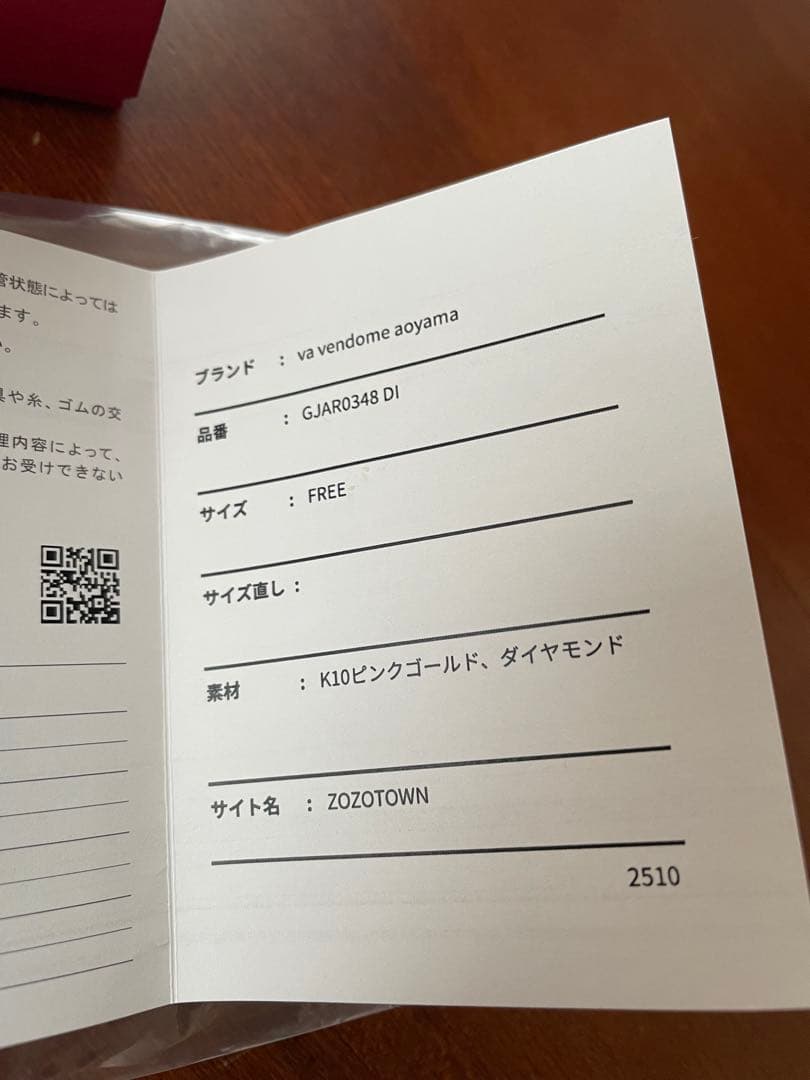 管状態によっては
ます。
い。
具や糸、ゴムの交
理内容によって、
お受けできない
ブランド : va vendome aoyama
品番 : GJAR0348 DI
サイズ : FREE
サイズ直し :
素材 : K10ピンクゴールド、ダイヤモンド
サイト名 : ZOZOTOWN
2510